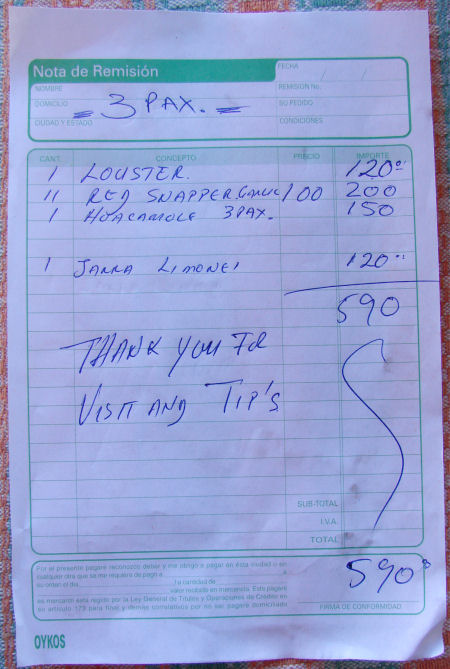 Nota de Remisión
FECHA
/ /
NOMBRE
REMISIÓN No.
DOMICILIO
SU PEDIDO
= 3 PAX. =
CIUDAD Y ESTADO
CONDICIONES
CANT. CONCEPTO PRECIO IMPORTE
1 LOUSTER. 120.00
11 RED SNAPPER. GARLIC 100 200
1 HUACAMOLE 3PAX. 150
1 JARRA LIMONEI 120.00
590
THANK YOU FOR
VISIT AND TIP'S
SUB-TOTAL
I.V.A.
TOTAL
Por el presente pagaré reconozco deber y me obligo a pagar en esta ciudad o en
cualquier otra que se me requiera de pago a
su orden el día la cantidad de
valor recibido en mercancía. Este pagaré
es mercantil está regido por la Ley General de Títulos y Operaciones de Crédito en
su artículo 173 parte final y demás correlativos por no ser pagaré domiciliado
590
FIRMA DE CONFORMIDAD
OYKOS